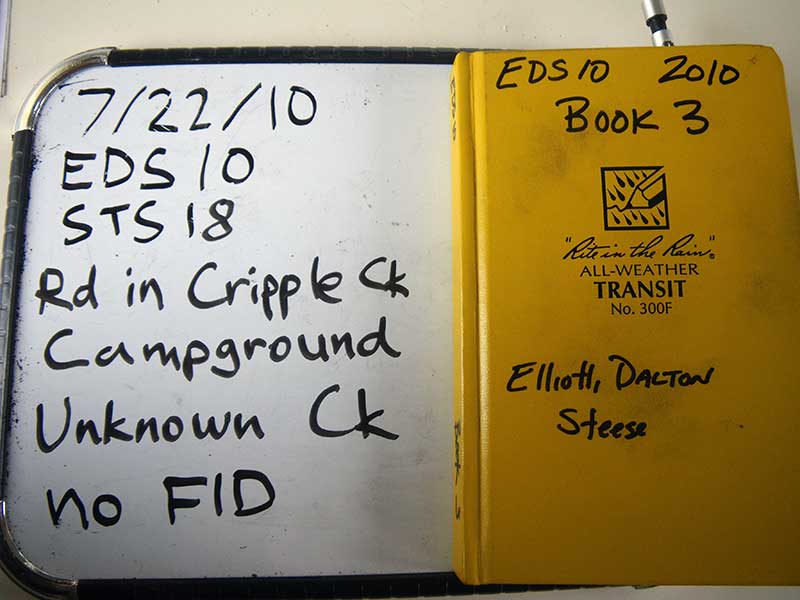 7/22/10
EDS 10
STS 18
Rd in Cripple Ck
Campground
Unknown Ck
no FID
EDS 10 2010
Book 3
"Rite in the Rain"®
ALL-WEATHER
TRANSIT
No. 300F
Elliott, DALTON
Steese